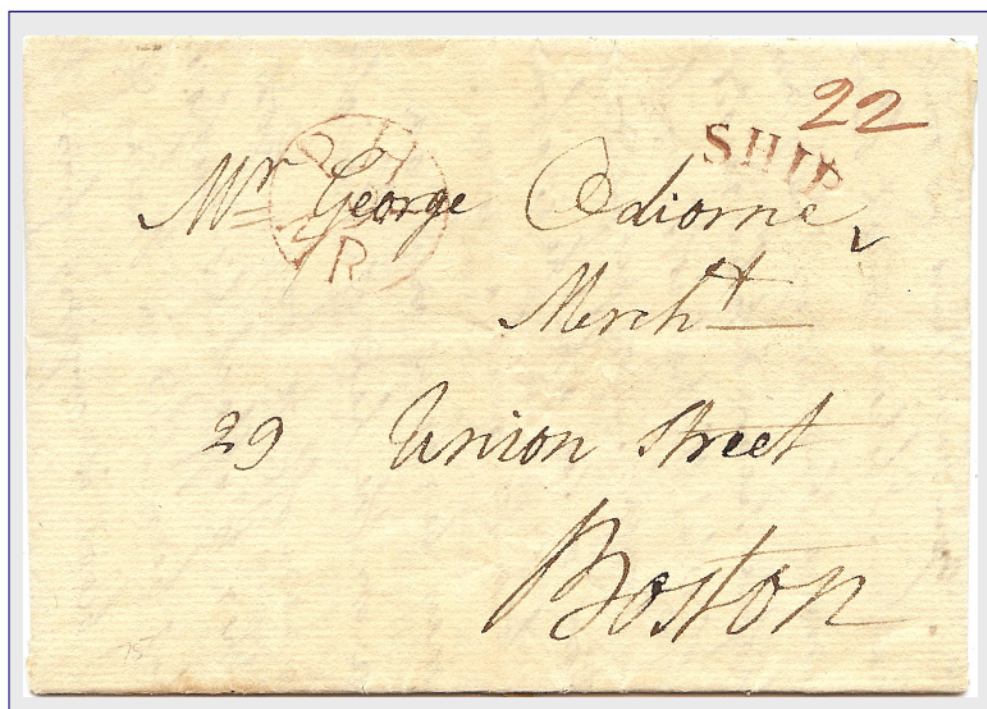 22
SHIP
Mr George Odiorne
Mercht
29 Union Street
Boston
75